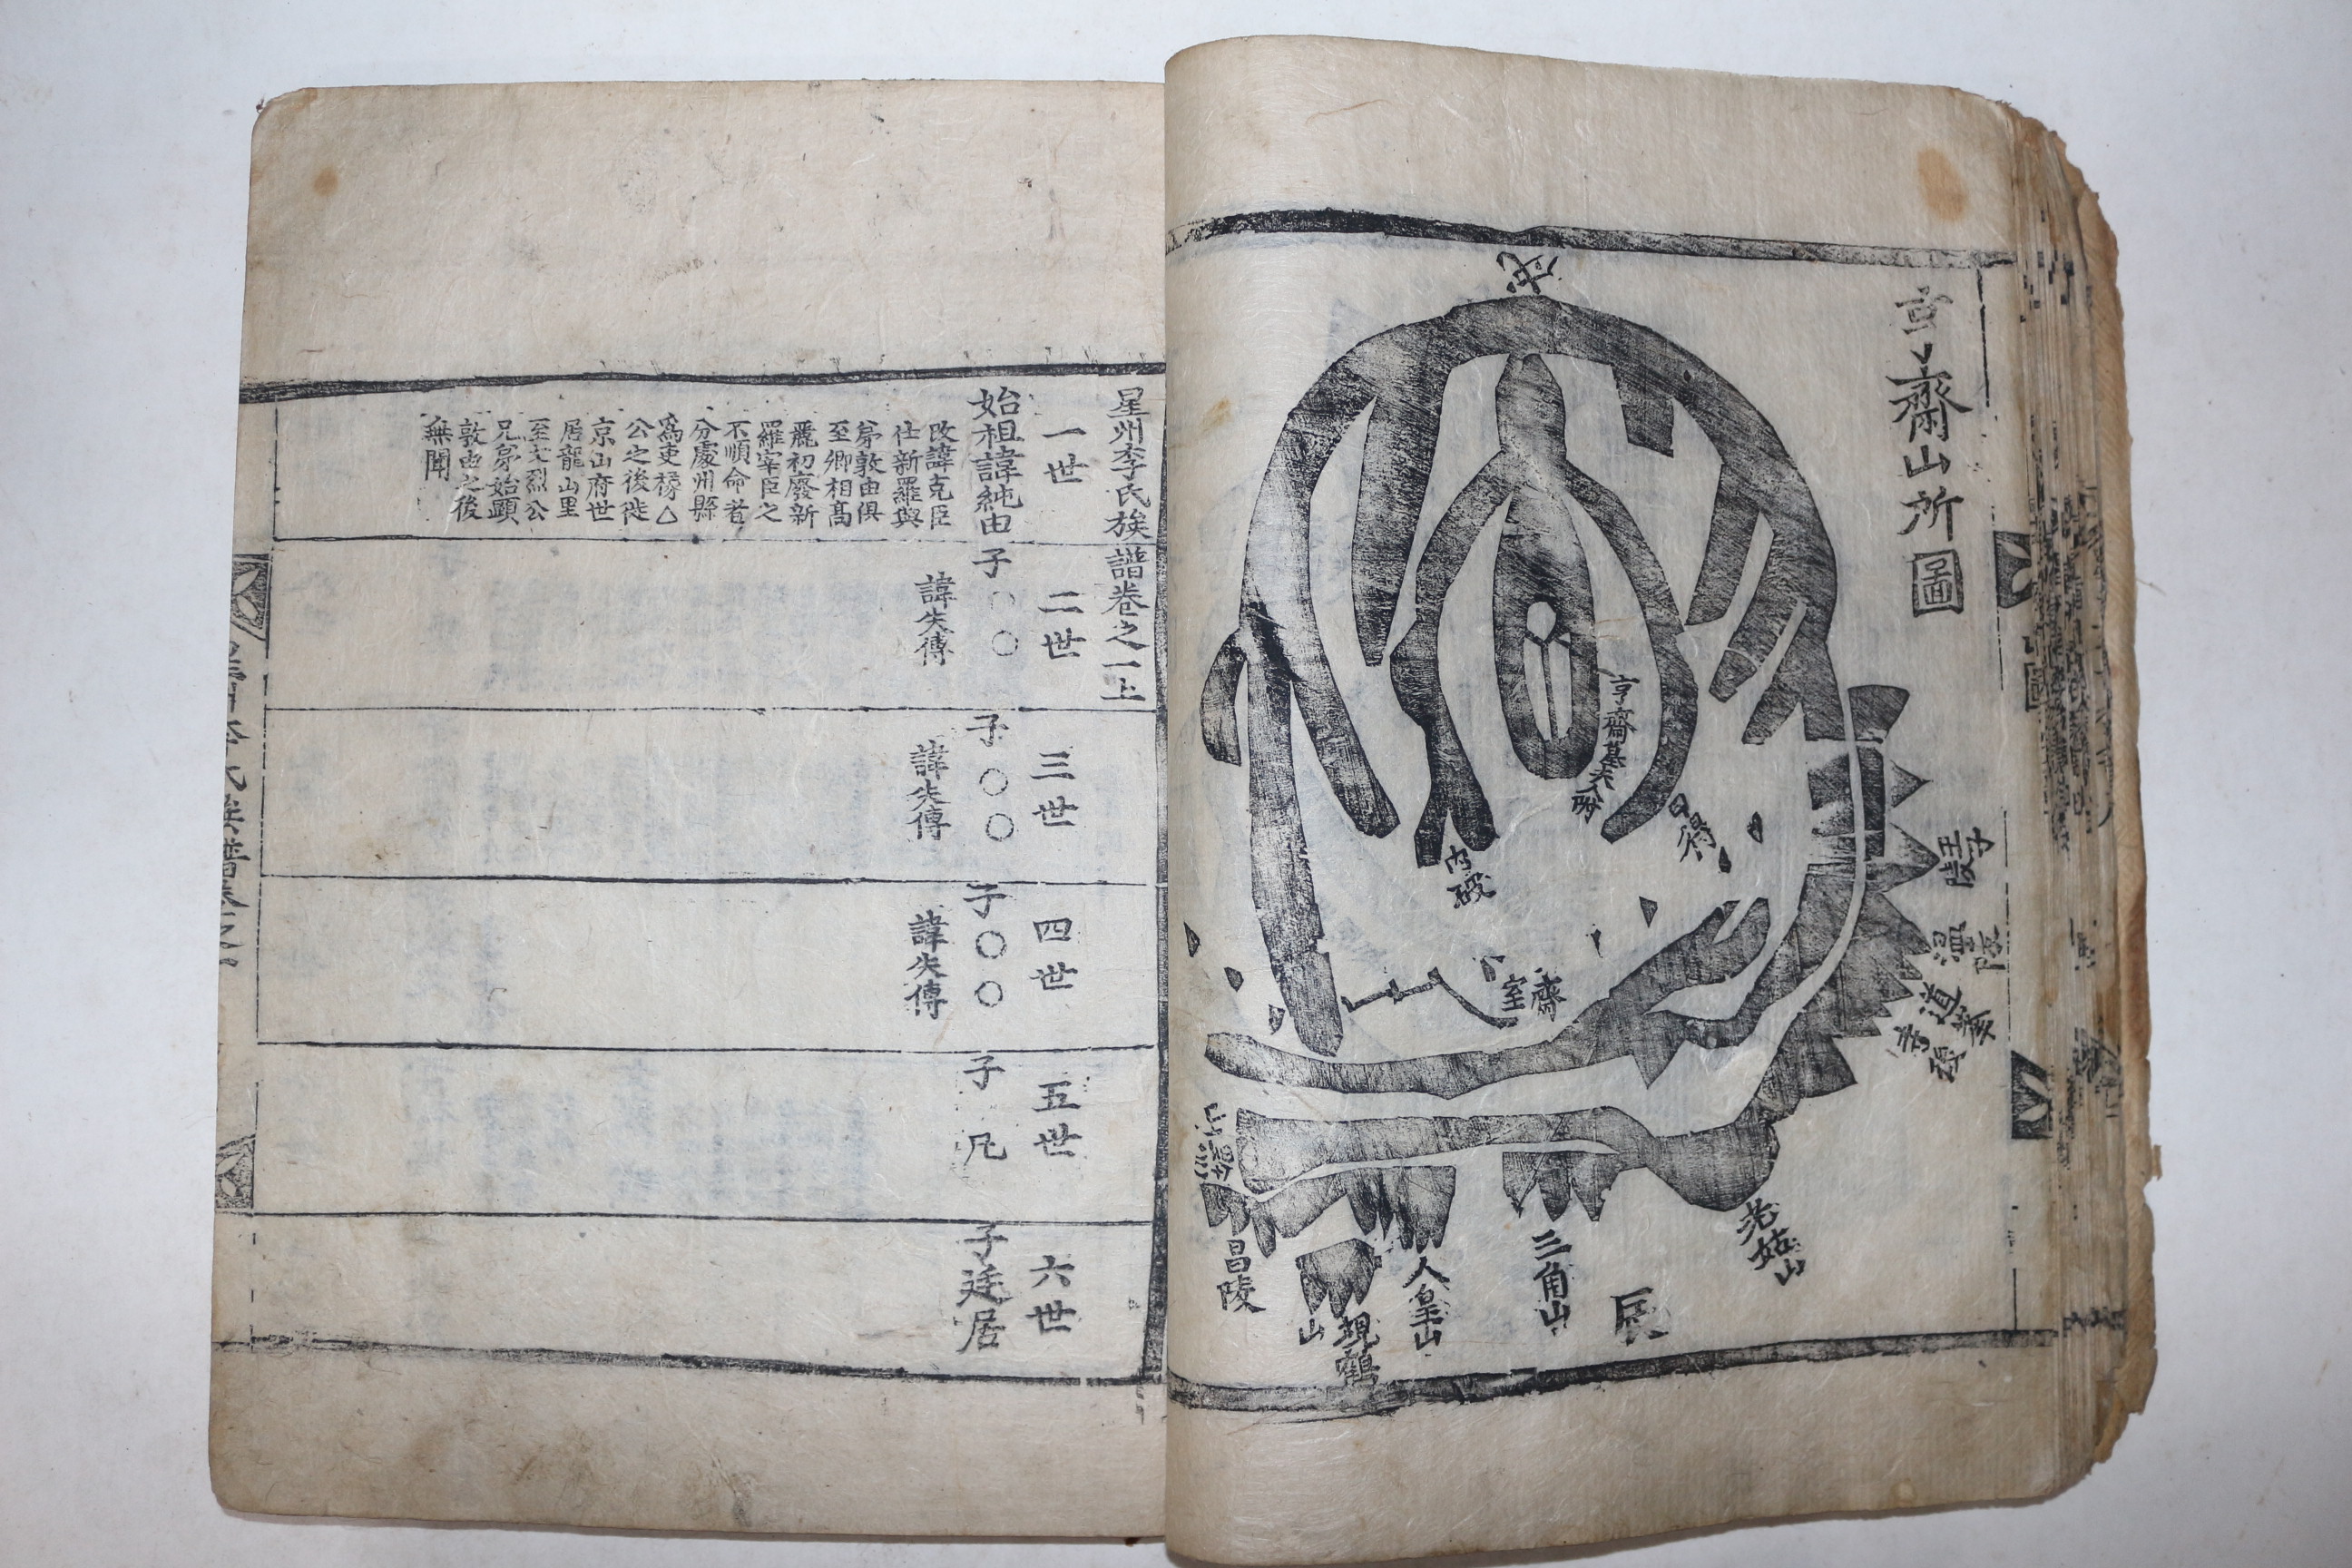 亨齋山所圖
戌
亨齋墓夫人附
日得
內破
齋室
王子陵
溫陵
老姑山
辰
三角山
人皇山
現鶴山
昌陵
星州李氏族譜卷之一上
一世
二世
三世
四世
五世
六世
始祖諱純由
改諱克臣
仕新羅與
弟敦由俱
至卿相高
麗初廢新
羅宰臣之
不順命者
分處州縣
爲吏椽△
公之後徙
京山府世
居龍山里
至文烈公
兄弟始顯
敦由之後
無聞
子○○
諱失傳
子○○
諱失傳
子○○
諱失傳
子凡
子廷居